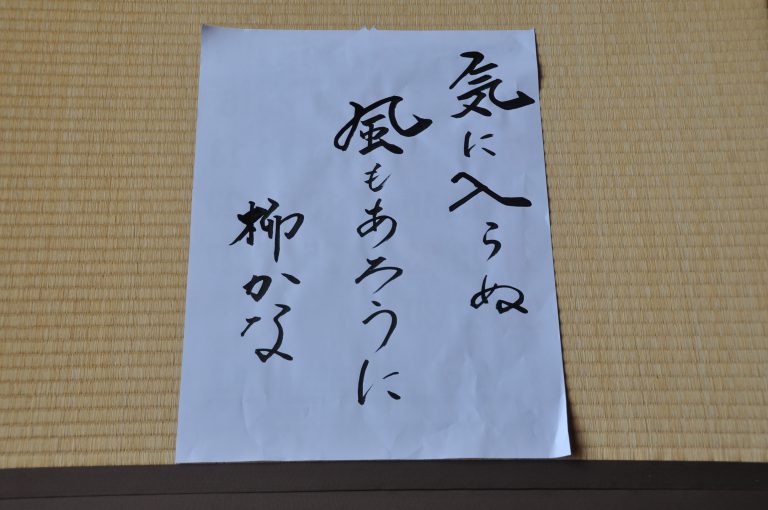 気に入らぬ
風もあろうに
柳かな